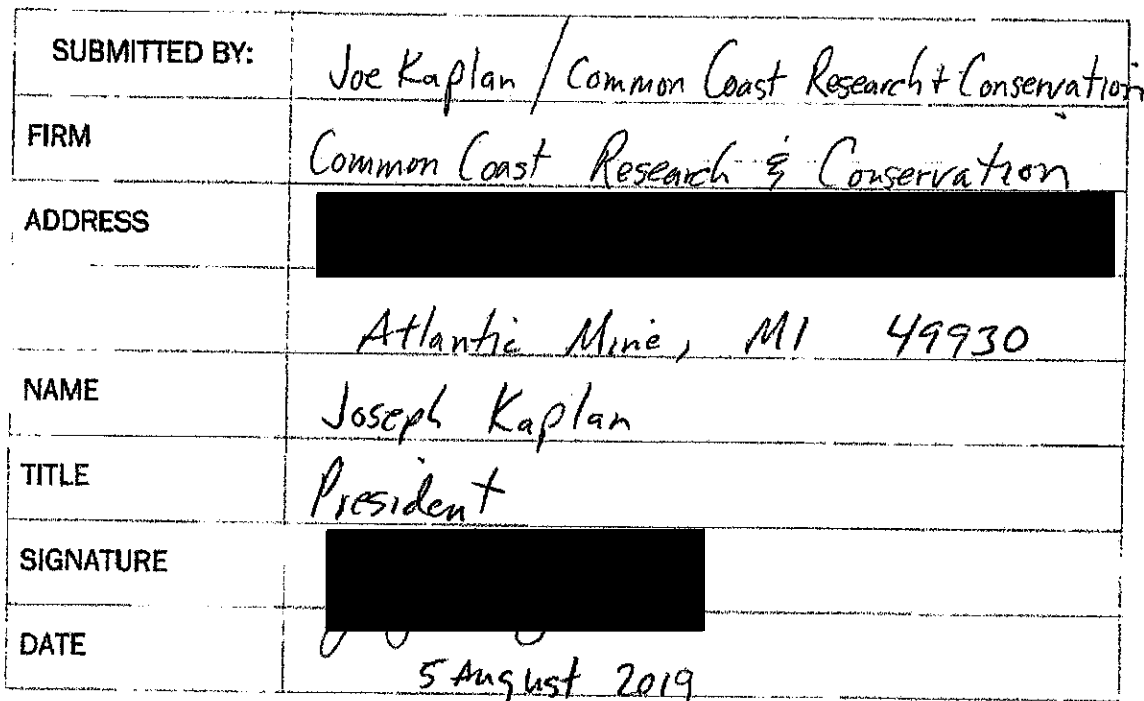 SUBMITTED BY: Joe Kaplan / Common Coast Research & Conservation
FIRM Common Coast Research & Conservation
ADDRESS
Atlantic Mine, MI 49930
NAME Joseph Kaplan
TITLE President
SIGNATURE
DATE 5 August 2019